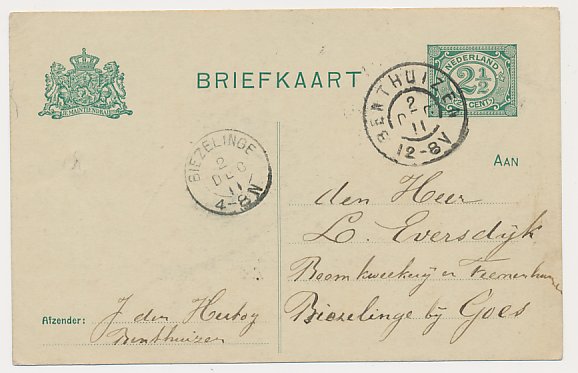 JE MAINTIENDRAI
BRIEFKAART
NEDERLAND
2½
CENT
BENTHUIZEN
2
DEC
11
12-8V
BIEZELINGE
2
DEC
11
4-8N
AAN
den Heer
L. Eversdijk
Boomkweekerij en
Biezelinge bij Goes
Afzender:
J den Hertog
Benthuizen